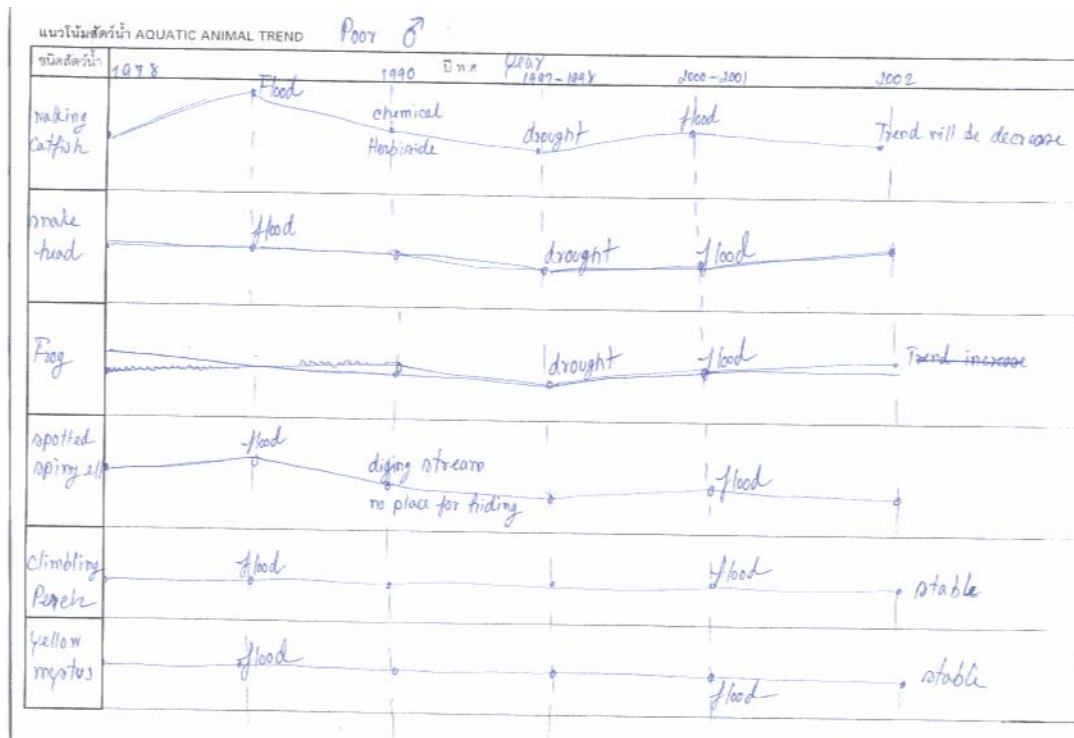 แนวโน้มสัตว์น้ำ AQUATIC ANIMAL TREND Poor ♂
ชนิดสัตว์น้ำ ปี พ.ศ. year
1978 1990 1997-1998 2000-2001 2002
walking
catfish
Flood
chemical
Herbicide
drought
flood
Trend will be decrease
snake
head
flood
drought
flood
Frog
drought
flood
Trend increase
spotted
spiny ell
flood
diging stream
no place for hiding
flood
climbling
Perch
flood
flood
stable
yellow
mystus
flood
flood
stable